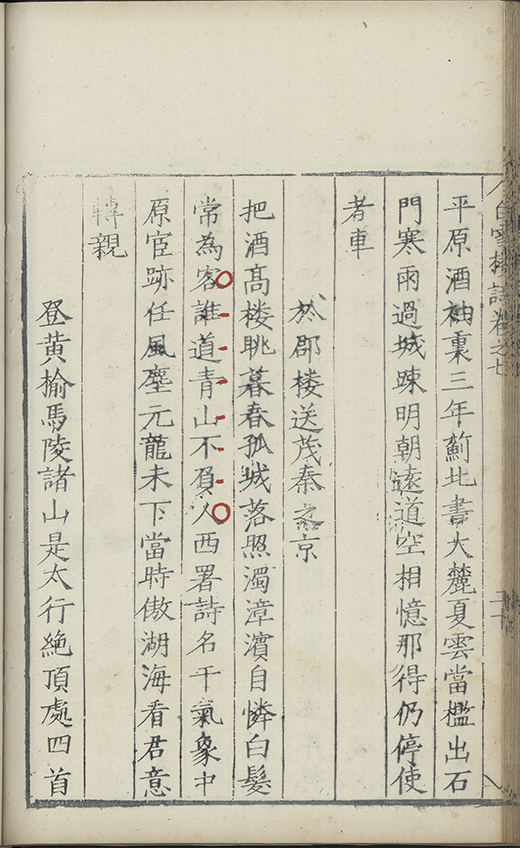 白雪樓詩卷之七
平原酒袖裏三年薊北書大麓夏雲當檻出石
門寒雨過城踈明朝遠道空相憶那得仍停使
者車
於郡楼送茂秦之京
把酒髙楼眺暮春孤城落照濁漳濱自憐白髮
常為客誰道青山不負人西署詩名干氣象中
原宦跡任風塵元龍未下當時傲湖海看君意
轉親
登黄榆馬陵諸山是太行絶頂處四首